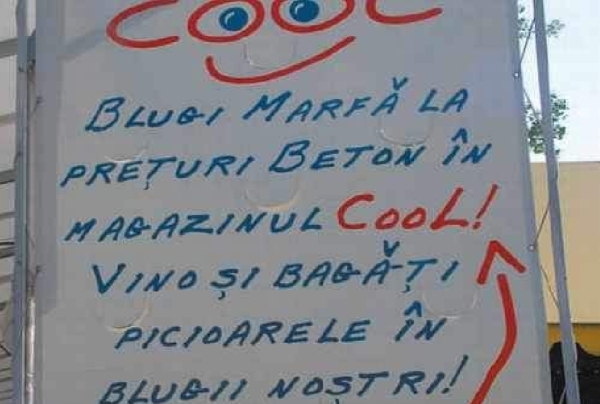 COOL
BLUGI MARFĂ LA
PREȚURI BETON ÎN
MAGAZINUL COOL!
VINO ȘI BAGĂ-ȚI
PICIOARELE ÎN
BLUGII NOȘTRI!